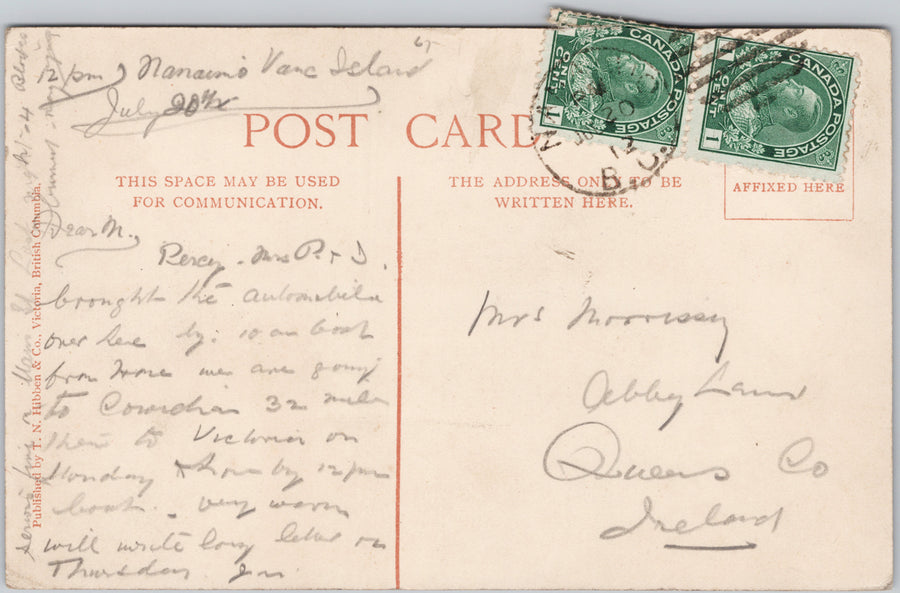 12 pm Nanaimo Vanc Island
July 20th
POST CARD
THIS SPACE MAY BE USED
FOR COMMUNICATION.
THE ADDRESS ONLY TO BE
WRITTEN HERE.
AFFIXED HERE
CANADA POSTAGE
ONE CENT
1
CANADA POSTAGE
1 CENT
1
20
12
B C
Dear M.
Percy - Mrs P. & D.
brought the automobile
over here by 10 am boat
from home we are going
to Cowichan 32 miles
then to Victoria on
Monday & home by 12 pm
boat. very warm
will write long letter on
Thursday
Mrs Morrissey
Abbyland
Queens Co
Ireland
Published by T. N. Hibben & Co., Victoria, British Columbia.
serious fire on Main St last night